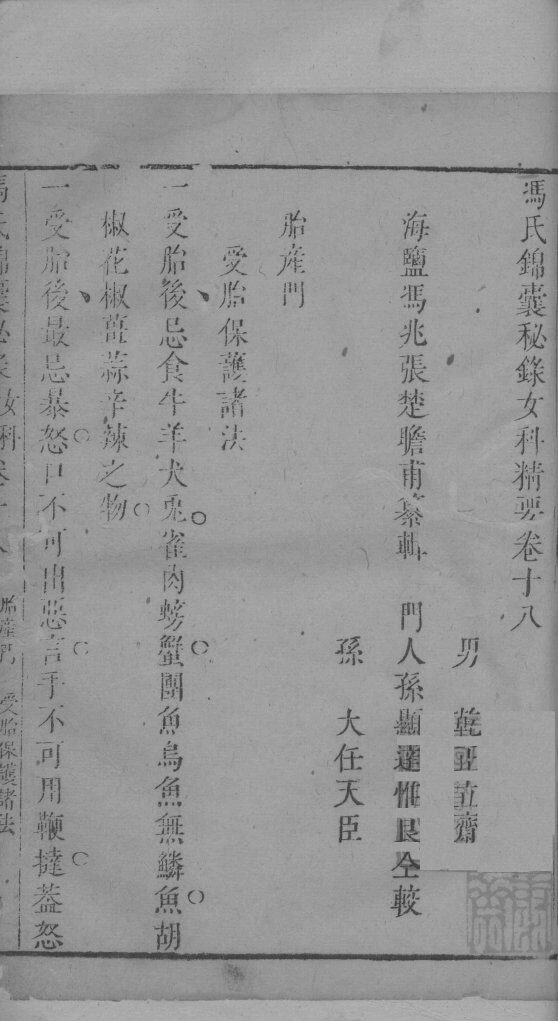 馮氏錦囊秘錄女科精要卷十八
男 乾 齋
海鹽馮兆張楚瞻甫纂輯 門人孫顯達惟良仝較
孫 大任天臣
胎產門
受胎保護諸法
一受胎後忌食牛羊犬兎雀肉螃蟹團魚烏魚無鱗魚胡
椒花椒薑蒜辛辣之物
一受胎後最忌暴怒口不可出惡言手不可用鞭撻蓋怒
馮氏錦囊秘錄女科卷十八 胎產門 受胎保護諸法